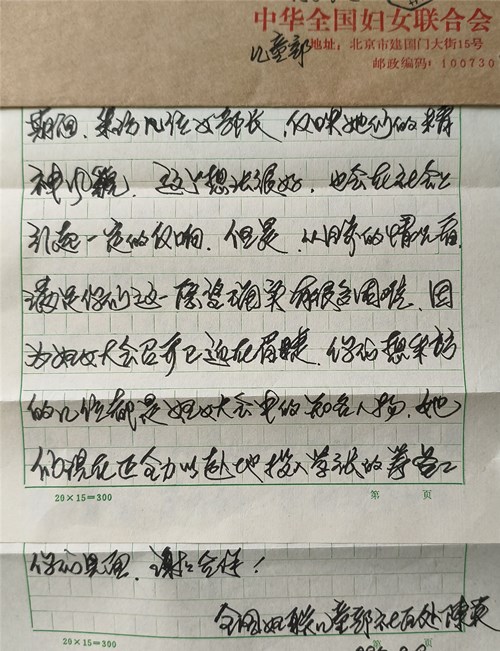 中华全国妇女联合会
儿童部
地址：北京市建国门大街15号
邮政编码：100730
期间，采访几位女部长，反映她们的精
神风貌，这个想法很好，也会在社会上
引起一定的反响。但是，从目前的情况看，
满足你们这一愿望确实有很多困难，因
为妇女大会召开已迫在眉睫，你们想采访
的几位都是妇女大会中的知名人物，她
们现在正全力以赴地投入学议的筹备工
20×15=300
第 页
你们见面。谢谢合作！
全国妇联儿童部社区处 陈英
20×15=300